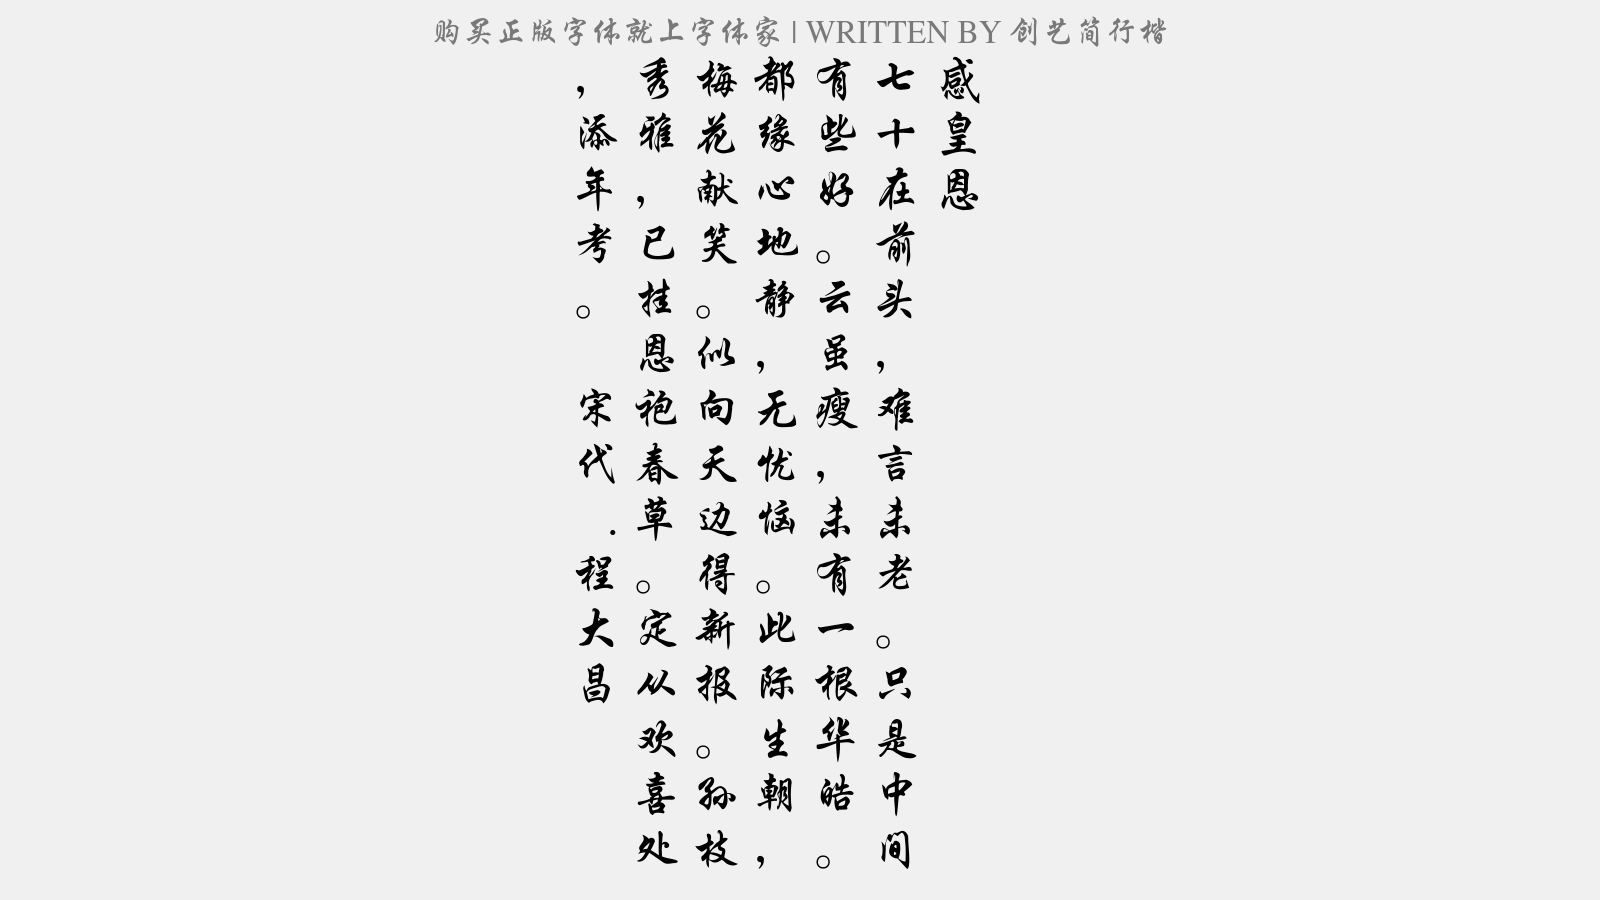 购买正版字体就上字体家 | WRITTEN BY 创艺简行楷
感皇恩
七十在前头，难言未老。只是中间
有些好。云虽瘦，未有一根华皓。
都缘心地静，无忧恼。此际生朝，
梅花献笑。似向天边得新报。孙枝
秀雅，已挂恩袍春草。定从欢喜处
，添年考。 宋代.程大昌